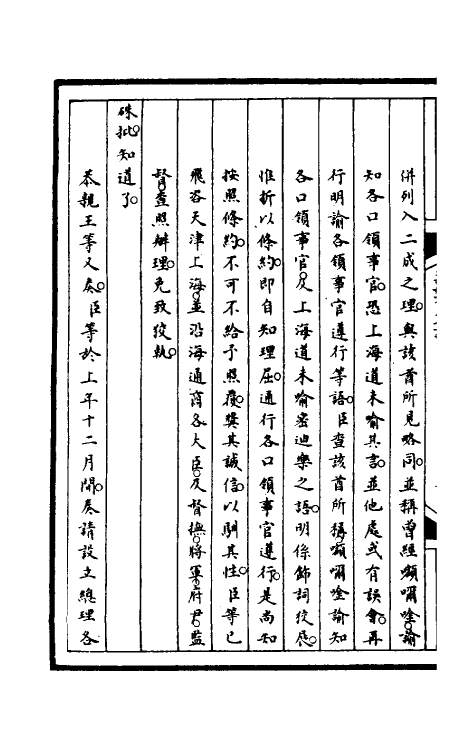 併列入二成之理。與該酋所見略同。並稱曾經額爾唫諭
知各口領事官。恐上海道未喻其書。並他處或有誤會。再
行明諭各領事官遵行等語。臣查該酋所稱額爾唫諭知
各口領事官。及上海道未喻密迪樂之語。明係飾詞狡展。
惟折以條約。即自知理屈。通行各口領事官遵行。是尚知
按照條約。不可不給予照覆。獎其誠信。以馴其性。臣等已
飛咨天津上海。並沿海通商各大臣。及督撫。將軍。府尹。監
督。查照辦理。免致狡執。
硃批。知道了。
恭親王等又奏。臣等於上年十二月間。奏請設立總理各